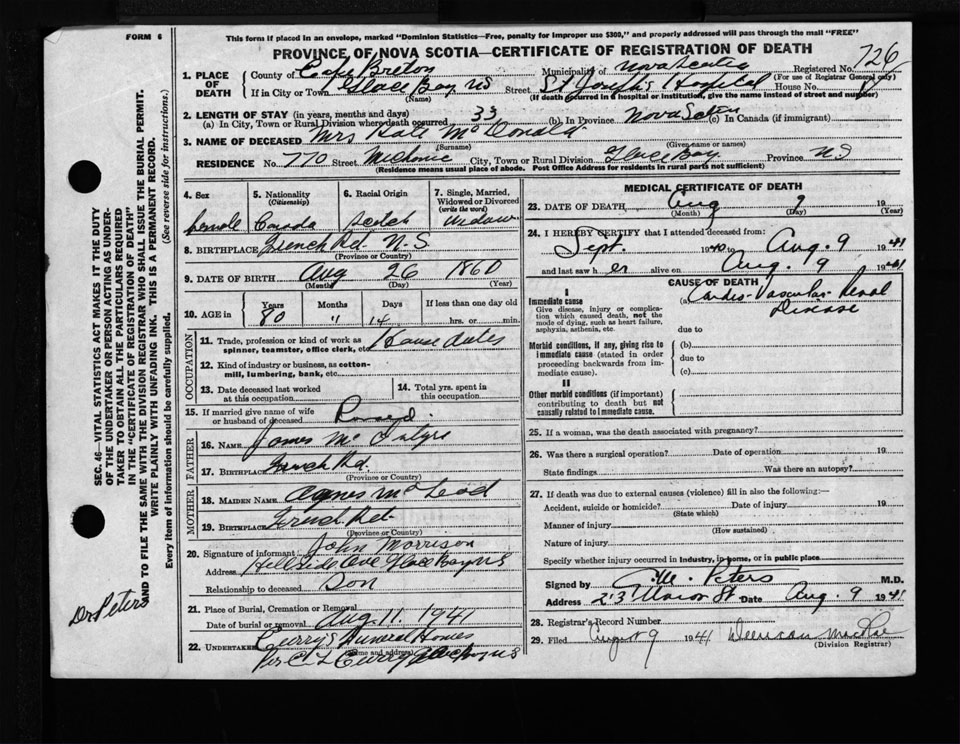 FORM 6
This form if placed in an envelope, marked "Dominion Statistics—Free, penalty for improper use $300," and properly addressed will pass through the mail "FREE"
PROVINCE OF NOVA SCOTIA—CERTIFICATE OF REGISTRATION OF DEATH
726
1. PLACE OF DEATH
County of Cape Breton Municipality of Nova Scotia Registered No.
(For use of Registrar General only)
If in City or Town Glace Bay NS Street St Joseph's Hospital House No.
(Name) (If death occurred in a hospital or institution, give the name instead of street and number)
2. LENGTH OF STAY (in years, months and days)
(a) In City, Town or Rural Division where death occurred 33 (b) In Province Nova Scotia (c) In Canada (if immigrant)
3. NAME OF DECEASED Mrs Kate McDonald
(Surname) (Given name or names)
RESIDENCE No. 770 Street City, Town or Rural Division Glace Bay Province NS
(Residence means usual place of abode. Post Office Address for residents in rural parts not sufficient)
4. Sex female
5. Nationality (Citizenship) Canada
6. Racial Origin Scotch
7. Single, Married, Widowed or Divorced (write the word) Widow
8. BIRTHPLACE French Rd. N.S.
(Province or Country)
9. DATE OF BIRTH Aug 26 1860
(Month) (Day) (Year)
10. AGE in Years 80 Months 11 Days 14 If less than one day old hrs. or min.
OCCUPATION
11. Trade, profession or kind of work as spinner, teamster, office clerk, etc. House duties
12. Kind of industry or business, as cotton-mill, lumbering, bank, etc.
13. Date deceased last worked at this occupation
14. Total yrs. spent in this occupation
15. If married give name of wife or husband of deceased
FATHER
16. NAME James McIntyre
17. BIRTHPLACE French Rd.
(Province or Country)
MOTHER
18. MAIDEN NAME Agnes McLeod
19. BIRTHPLACE French Rd.
(Province or Country)
20. Signature of informant John Morrison
Address Hillside Ave Glace Bay NS
Relationship to deceased Son
21. Place of Burial, Cremation or Removal
Date of burial or removal Aug. 11, 1941
22. UNDERTAKER Curry's Funeral Homes
(Name and address)
Per C L Curry Glace Bay NS
MEDICAL CERTIFICATE OF DEATH
23. DATE OF DEATH Aug 9 19
(Month) (Day) (Year)
24. I HEREBY CERTIFY that I attended deceased from:
Sept. 1940 to Aug. 9 1941
and last saw her alive on Aug. 9 1941
CAUSE OF DEATH
I
Immediate cause
Give disease, injury or complication which caused death, not the mode of dying, such as heart failure, asphyxia, asthenia, etc.
(a) Cardio-Vascular-Renal Disease
due to
Morbid conditions, if any, giving rise to immediate cause (stated in order proceeding backwards from immediate cause).
(b)
due to
(c)
II
Other morbid conditions (if important) contributing to death but not causally related to immediate cause.
25. If a woman, was the death associated with pregnancy?
26. Was there a surgical operation? Date of operation 19
State findings Was there an autopsy?
27. If death was due to external causes (violence) fill in also the following:—
Accident, suicide or homicide? Date of injury 19
(State which)
Manner of injury
(How sustained)
Nature of injury
Specify whether injury occurred in industry, in home, or in public place
Signed by C.M. Peters M.D.
Address 213 Main St Date Aug. 9 1941
28. Registrar's Record Number
29. Filed August 9 1941
(Division Registrar)
SEC. 46—VITAL STATISTICS ACT MAKES IT THE DUTY
OF THE UNDERTAKER OR PERSON ACTING AS UNDER-
TAKER TO OBTAIN ALL THE PARTICULARS REQUIRED
IN THE "CERTIFICATE OF REGISTRATION OF DEATH"
AND TO FILE THE SAME WITH THE DIVISION REGISTRAR WHO SHALL ISSUE THE BURIAL PERMIT.
WRITE PLAINLY WITH UNFADING INK. THIS IS A PERMANENT RECORD.
Every item of Information should be carefully supplied. (See reverse side for instructions.)
Dr Peters